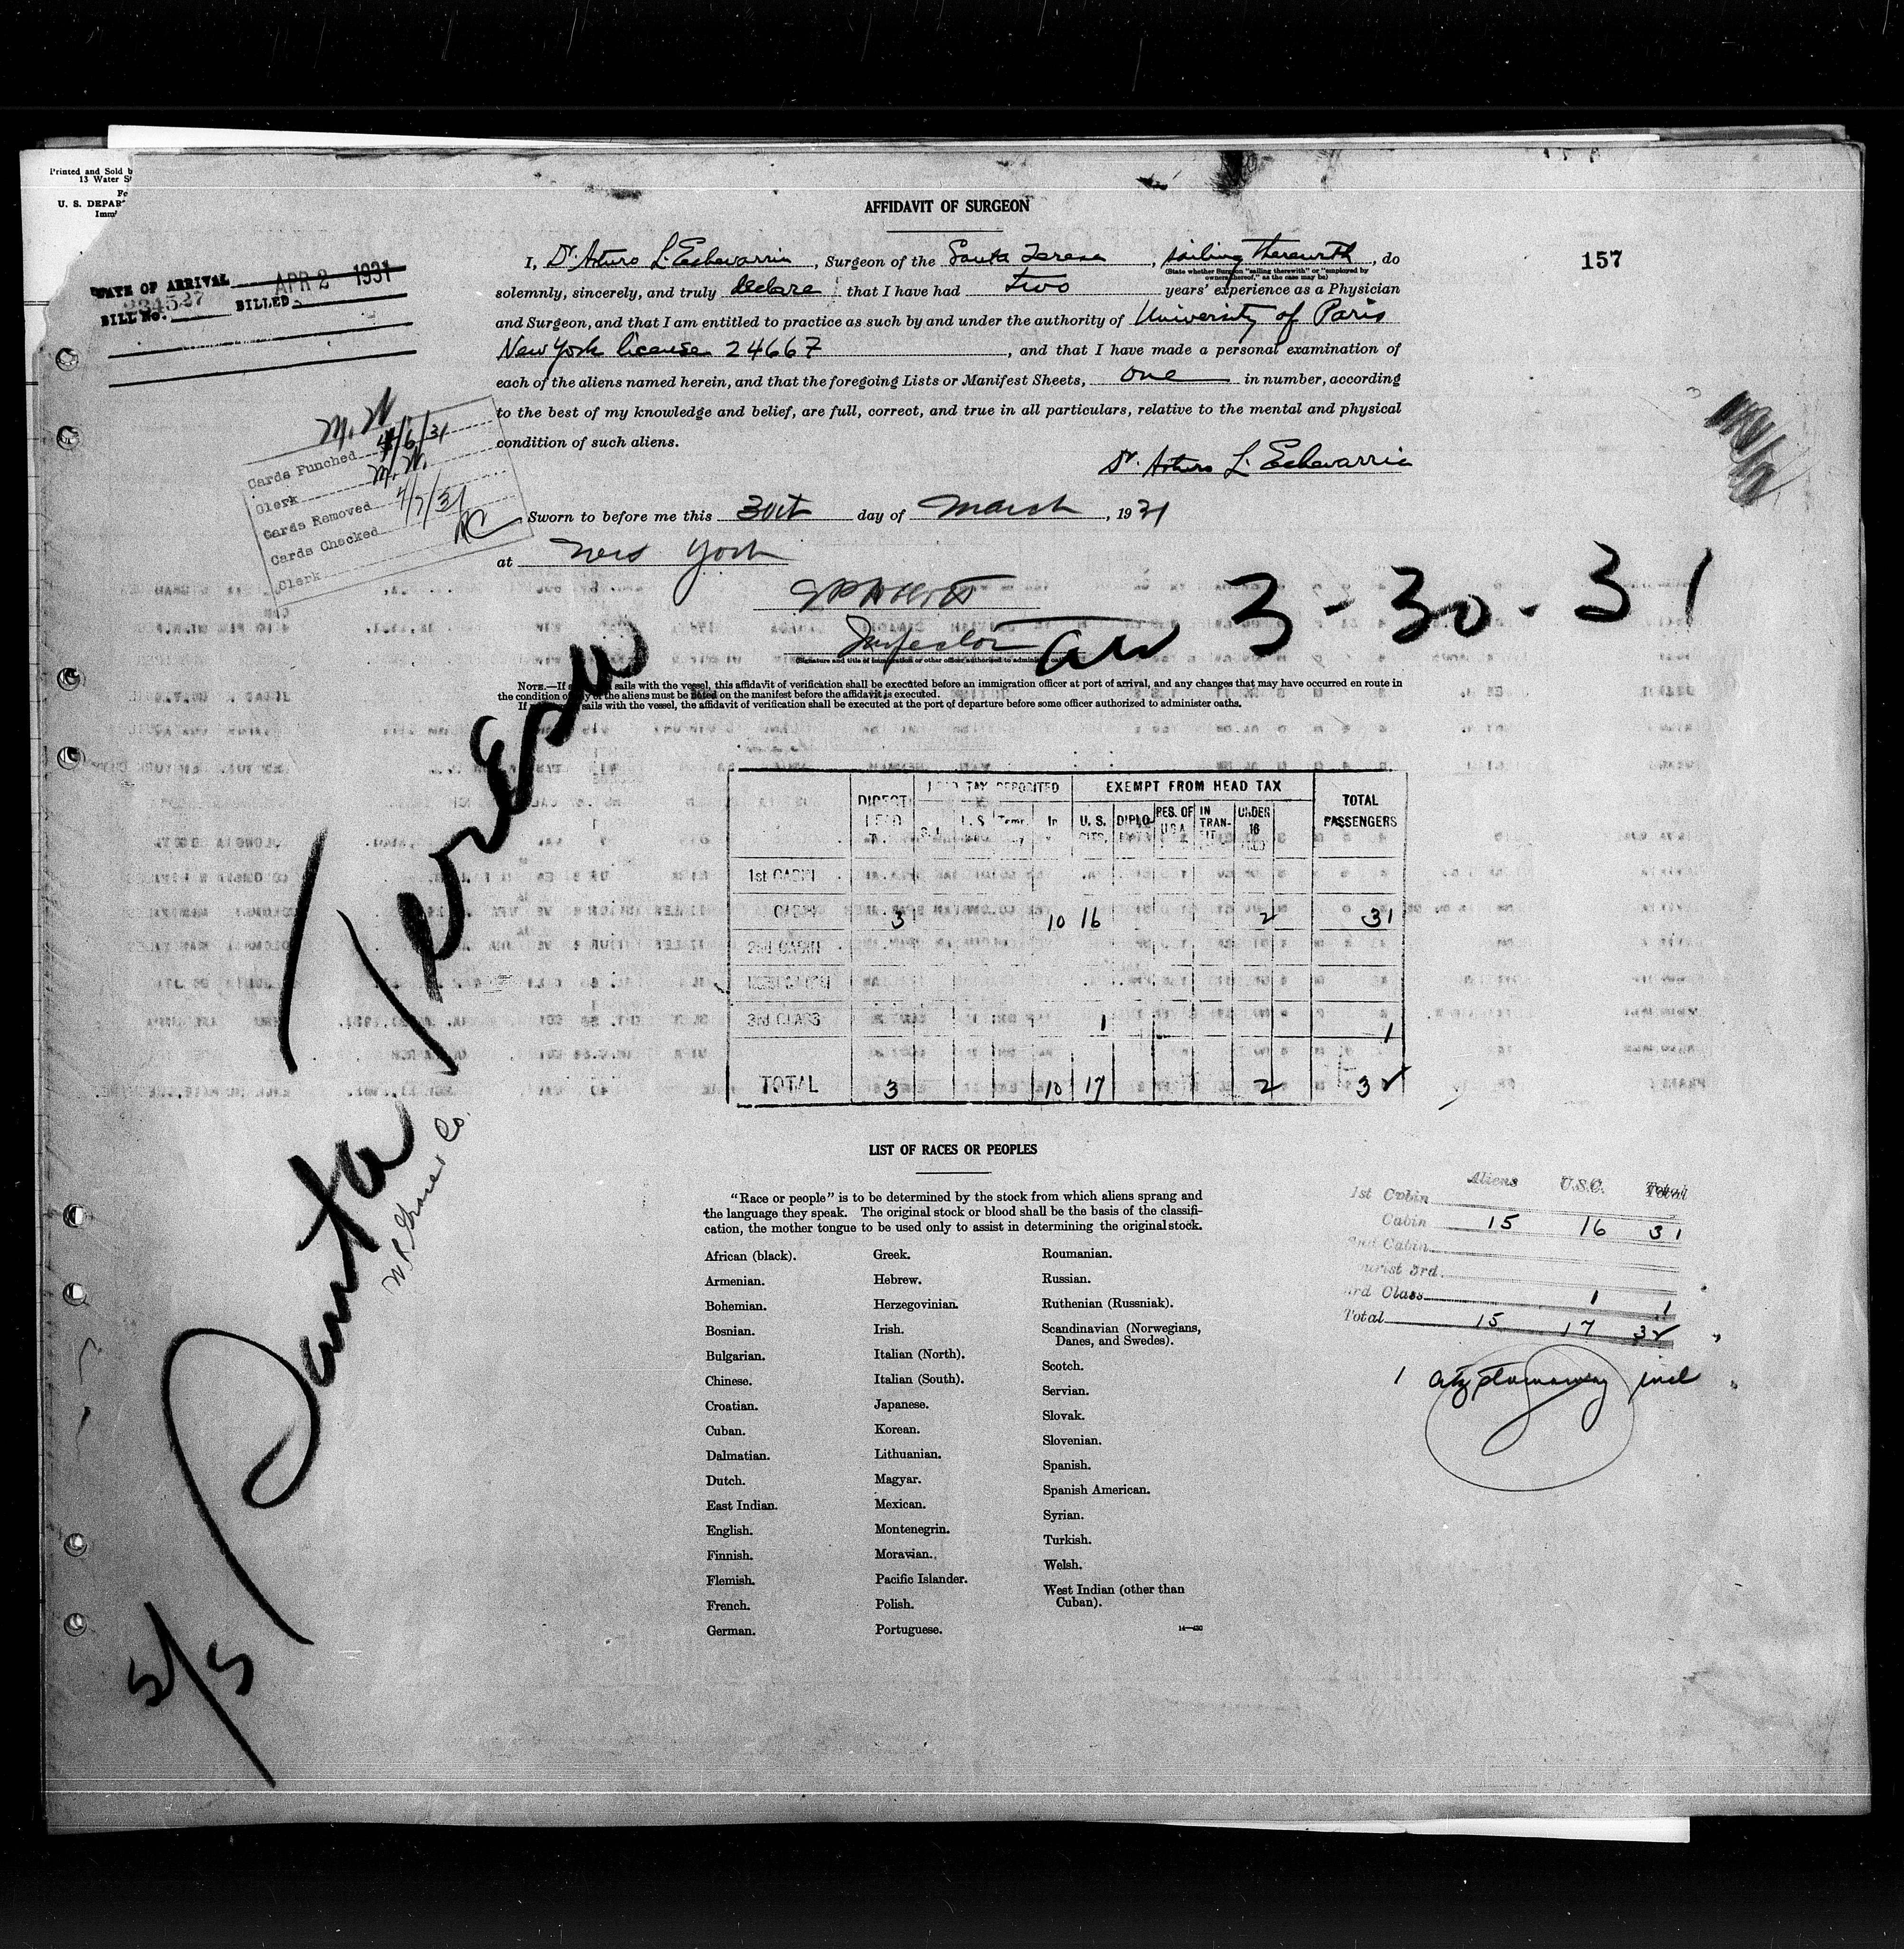 Printed and Sold b
13 Water S
Fe
U. S. DEPAR
Imm
AFFIDAVIT OF SURGEON
157
I, Dr. Arturo L. Echevarria, Surgeon of the Santa Teresa, sailing therewith, do
(State whether Surgeon "sailing therewith" or "employed by
owners thereof," as the case may be)
solemnly, sincerely, and truly declare that I have had two years' experience as a Physician
and Surgeon, and that I am entitled to practice as such by and under the authority of University of Paris
New York license 24667, and that I have made a personal examination of
each of the aliens named herein, and that the foregoing Lists or Manifest Sheets, one in number, according
to the best of my knowledge and belief, are full, correct, and true in all particulars, relative to the mental and physical
condition of such aliens.
Dr. Arturo L. Echevarria
Sworn to before me this day of March, 1931
at New York
Inspector
(Signature and title of immigration or other officer authorized to administer oaths)
3-30-31
NOTE.—If sails with the vessel, this affidavit of verification shall be executed before an immigration officer at port of arrival, and any changes that may have occurred en route in
the condition of any of the aliens must be noted on the manifest before the affidavit is executed.
If sails with the vessel, the affidavit of verification shall be executed at the port of departure before some officer authorized to administer oaths.
DATE OF ARRIVAL
APR 2 1931
BILL No. 234527 BILLED
M. W.
Cards Punched 4/6/31
Clerk M. W.
Cards Removed 4/7/31
Cards Checked RC
Clerk
Santa Teresa
W. R. Grace & Co.
5/5
DIRECT HEAD HEAD TAX DEPOSITED EXEMPT FROM HEAD TAX TOTAL PASSENGERS
U. S. CITS. DIPLO- RES. OF USA IN TRAN- SIT UNDER 16
1st CABIN
CABIN 3 10 16 2 31
2nd CABIN
3rd CLASS 1 1
TOTAL 3 10 17 2 32
LIST OF RACES OR PEOPLES
"Race or people" is to be determined by the stock from which aliens sprang and
the language they speak. The original stock or blood shall be the basis of the classifi-
cation, the mother tongue to be used only to assist in determining the original stock.
African (black).
Armenian.
Bohemian.
Bosnian.
Bulgarian.
Chinese.
Croatian.
Cuban.
Dalmatian.
Dutch.
East Indian.
English.
Finnish.
Flemish.
French.
German.
Greek.
Hebrew.
Herzegovinian.
Irish.
Italian (North).
Italian (South).
Japanese.
Korean.
Lithuanian.
Magyar.
Mexican.
Montenegrin.
Moravian.
Pacific Islander.
Polish.
Portuguese.
Roumanian.
Russian.
Ruthenian (Russniak).
Scandinavian (Norwegians,
Danes, and Swedes).
Scotch.
Servian.
Slovak.
Slovenian.
Spanish.
Spanish American.
Syrian.
Turkish.
Welsh.
West Indian (other than
Cuban).
14—430
Aliens U.S.C. Total
1st Cabin
Cabin 15 16 31
2nd Cabin
Tourist 3rd
3rd Class 1 1
Total 15 17 32
1 ctz stowaway incl